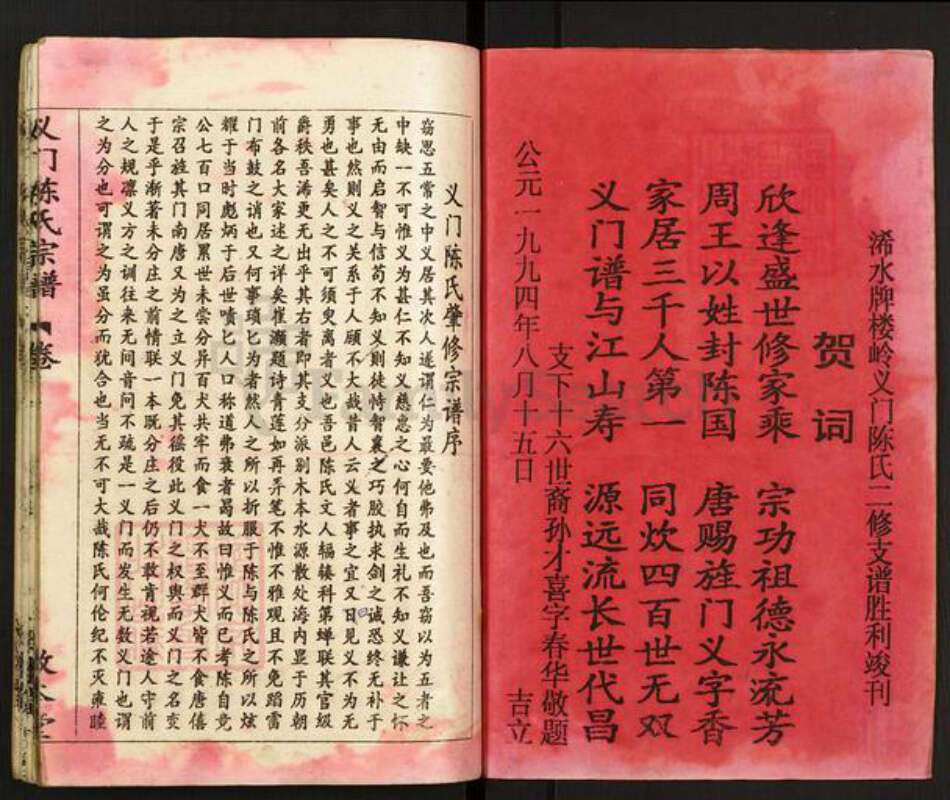 浠水牌楼岭义门陈氏二修支谱胜利竣刊
贺词
欣逢盛世修家乘 宗功祖德永流芳
周王以姓封陈国 唐赐旌门义字香
家居三千人第一 同炊四百世无双
义门谱与江山寿 源远流长世代昌
支下十六世裔孙才喜字春华敬题
吉立
公元一九九四年八月十五日
义门陈氏肇修宗谱序
窃思五常之中义居其次人遂谓仁为最要他弗及也而吾窃以为五者之
中缺一不可惟义为甚仁不知义慈惠之心何自而生礼不知义谦让之怀
无由而启智与信苟不知义则徒恃智襄之巧胶执求剑之诚恐终无补于
事也然则义之关系于人顾不大哉昔人云义者事之宜又曰见义不为无
勇也甚矣人之不可须臾离者义也吾邑陈氏文人辐辏科第蝉联其官级
爵秩吾浠更无出乎其右者即其支分派别木本水源散处海内显于历朝
前各名大家述之详矣崔灏题诗青莲如再弄笔不惟不雅观且不免蹈雷
门布鼓之诮也又何事琐匕为者然人之所以折服于陈与陈氏之所以炫
耀于当时彪炳于后世啧匕人口称道弗衰者曷故曰惟义而已考陈自竞
公七百口同居累世未尝分异百犬共牢而食一犬不至群犬皆不食唐僖
宗召旌其门南唐又为之立义门免其徭役此义门之权舆而义门之名变
于是乎渐著未分庄之前情联一本既分庄之后仍不敢肯视若途人守前
人之规凛义方之训往来无间音问不疏是一义门而发生无数义门也谓
之为分也可谓之为虽分而犹合也当无不可大哉陈氏何伦纪不灭雍睦
义门陈氏宗谱 卷